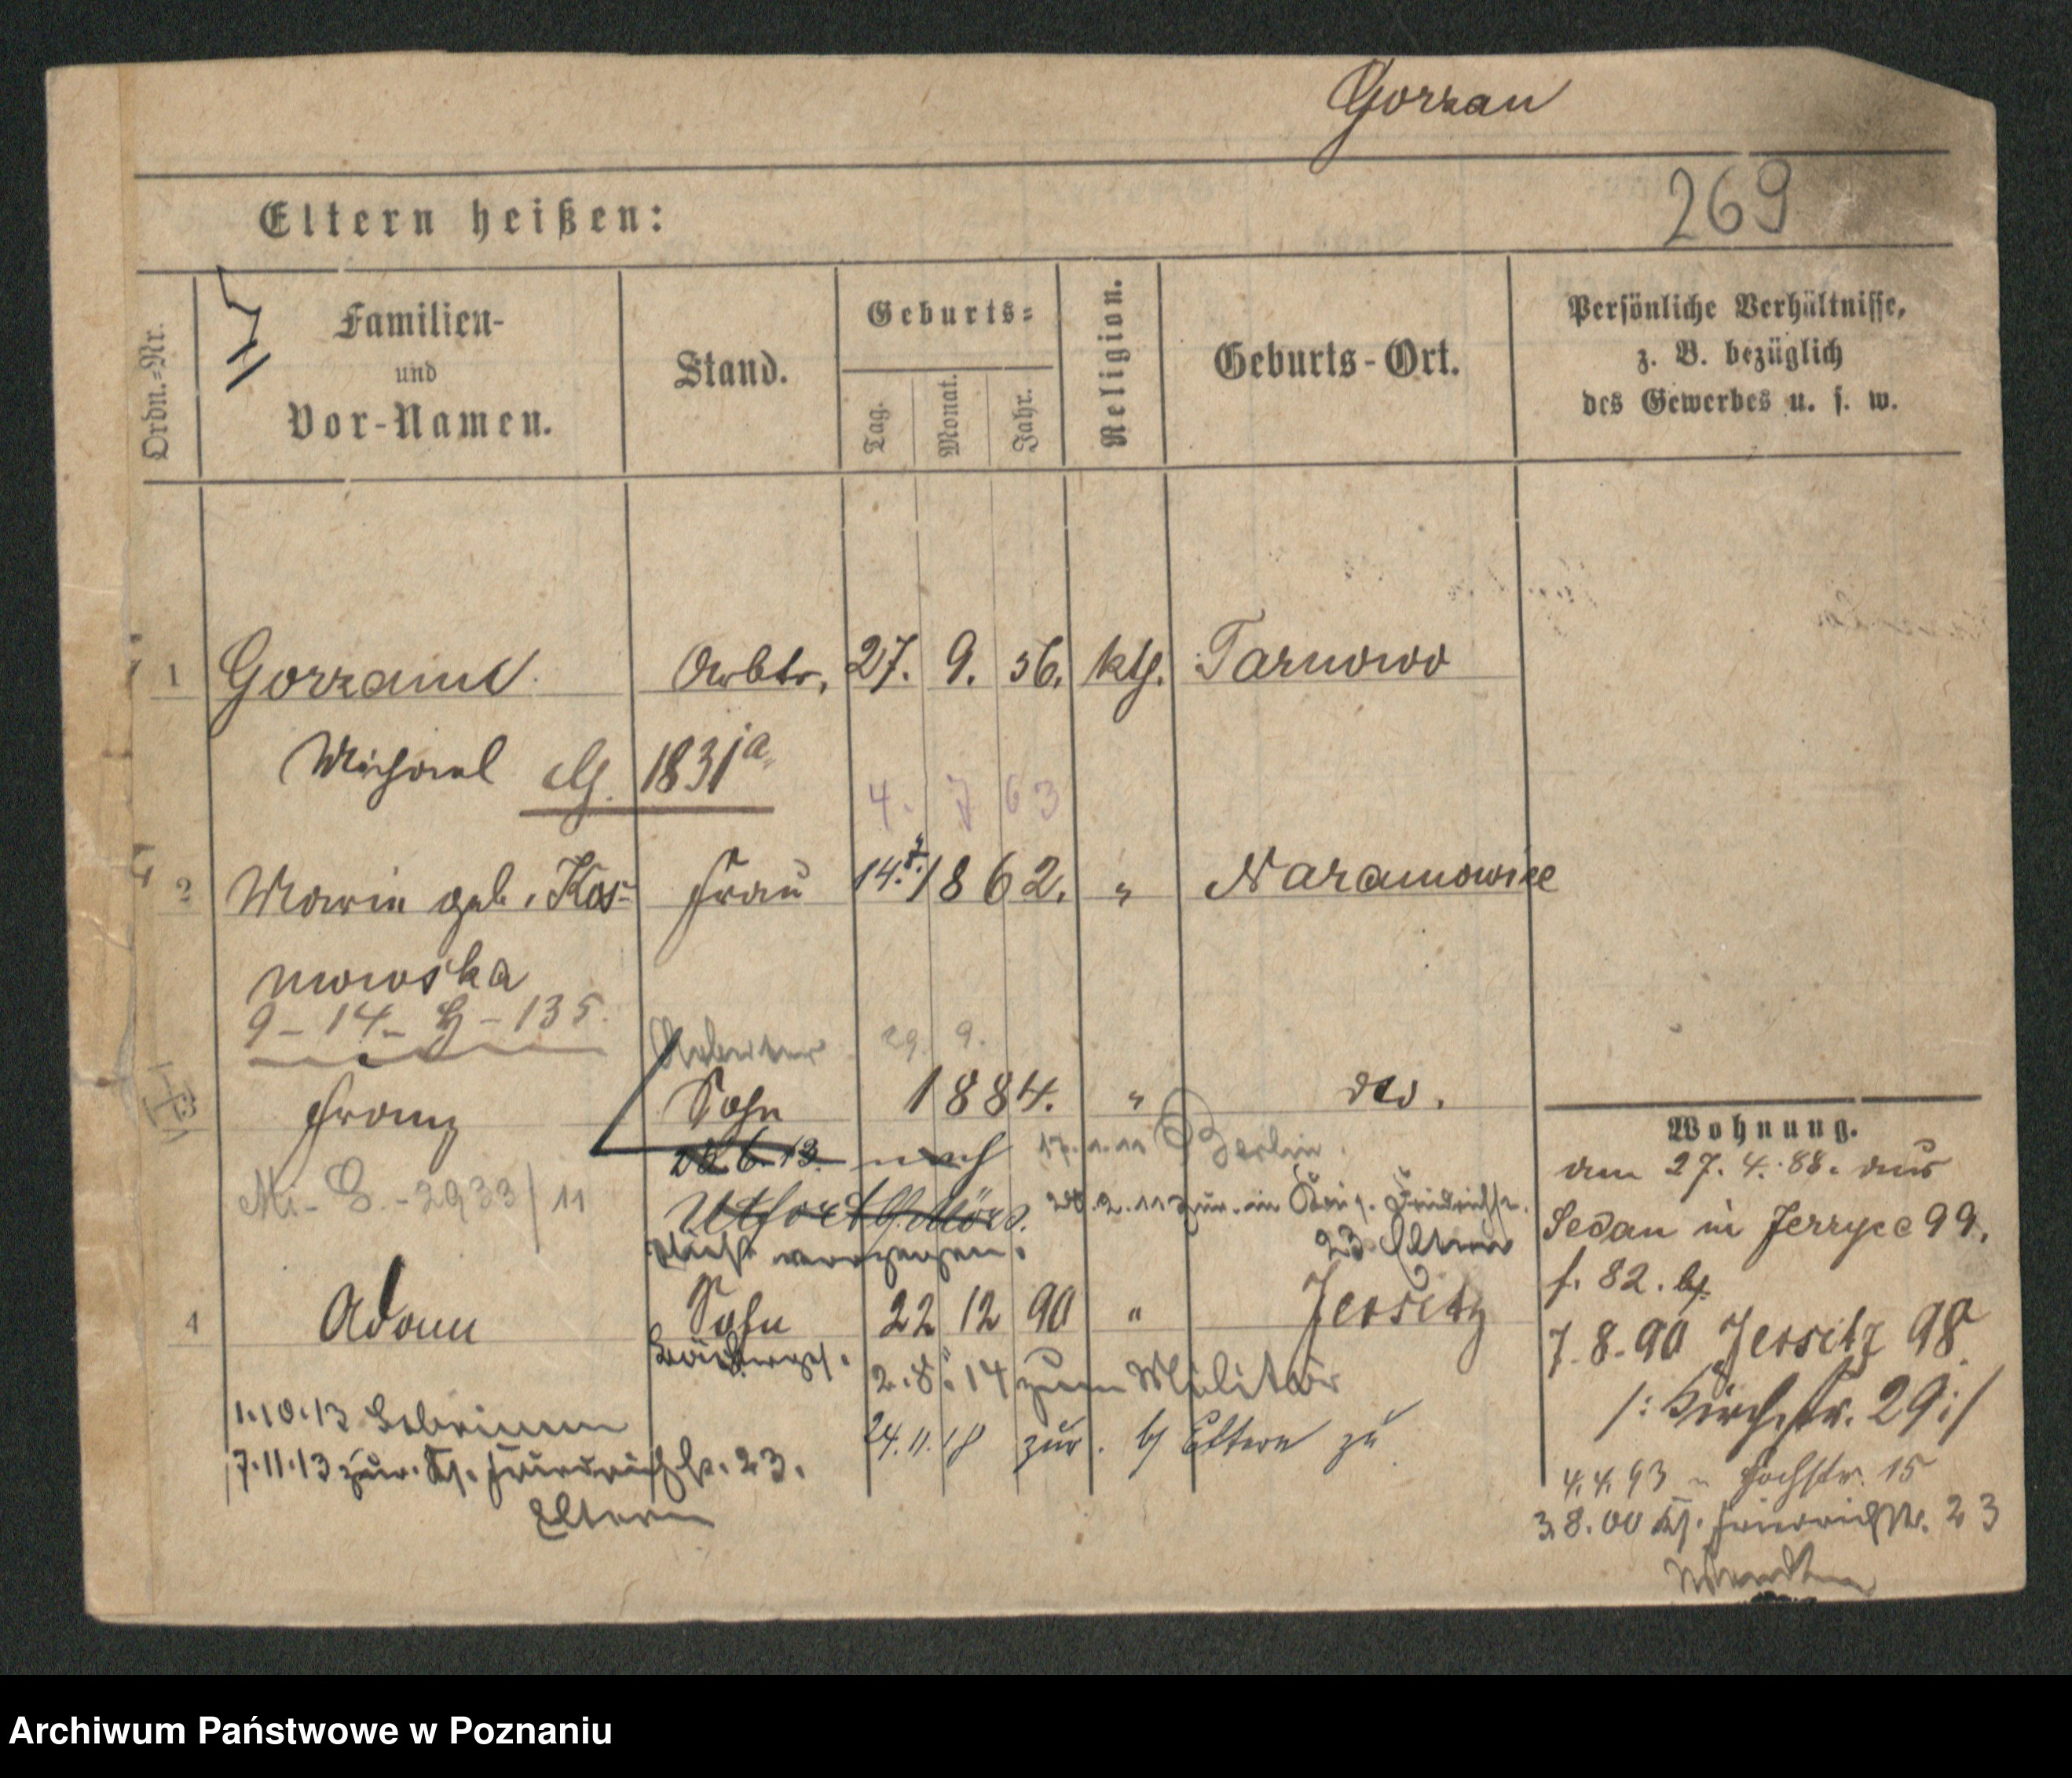 Gorzan
269
Eltern heißen:
Ordn.-Nr.
Familien-
und
Vor-Namen.
Stand.
Geburts-
Tag.
Monat.
Jahr.
Religion.
Geburts-Ort.
Persönliche Verhältnisse,
z. B. bezüglich
des Gewerbes u. s. w.
1 Arbtr. 27. 9. 56. kth. Tarnowo
Michael 1831
4. 7 63
2 Maria geb. Kos- Frau 14. 7. 1862. "
nowska
9-14- 135.
Arbeiter 29. 9.
Franz Sohn 1884. " dto.
28.6.13. nach 17.1.11 Berlin.
2933/11
23 Eltern
4 Adam Sohn 22 12 90 " Jersitz
2.8.14 zum Militär
24.11.18 zur. Eltern zu
1.10.13
7.11.13 zur. Friedrichstr. 23.
Eltern
Wohnung.
am 27. 4. 88. aus
Sedan in Jerzyce 99.
f. 82.
7.8.90 Jersitz 98
/: Kirchstr. 29 :/
4.4.93 Hochstr. 15
3.8.00 Friedrichstr. 23
Archiwum Państwowe w Poznaniu